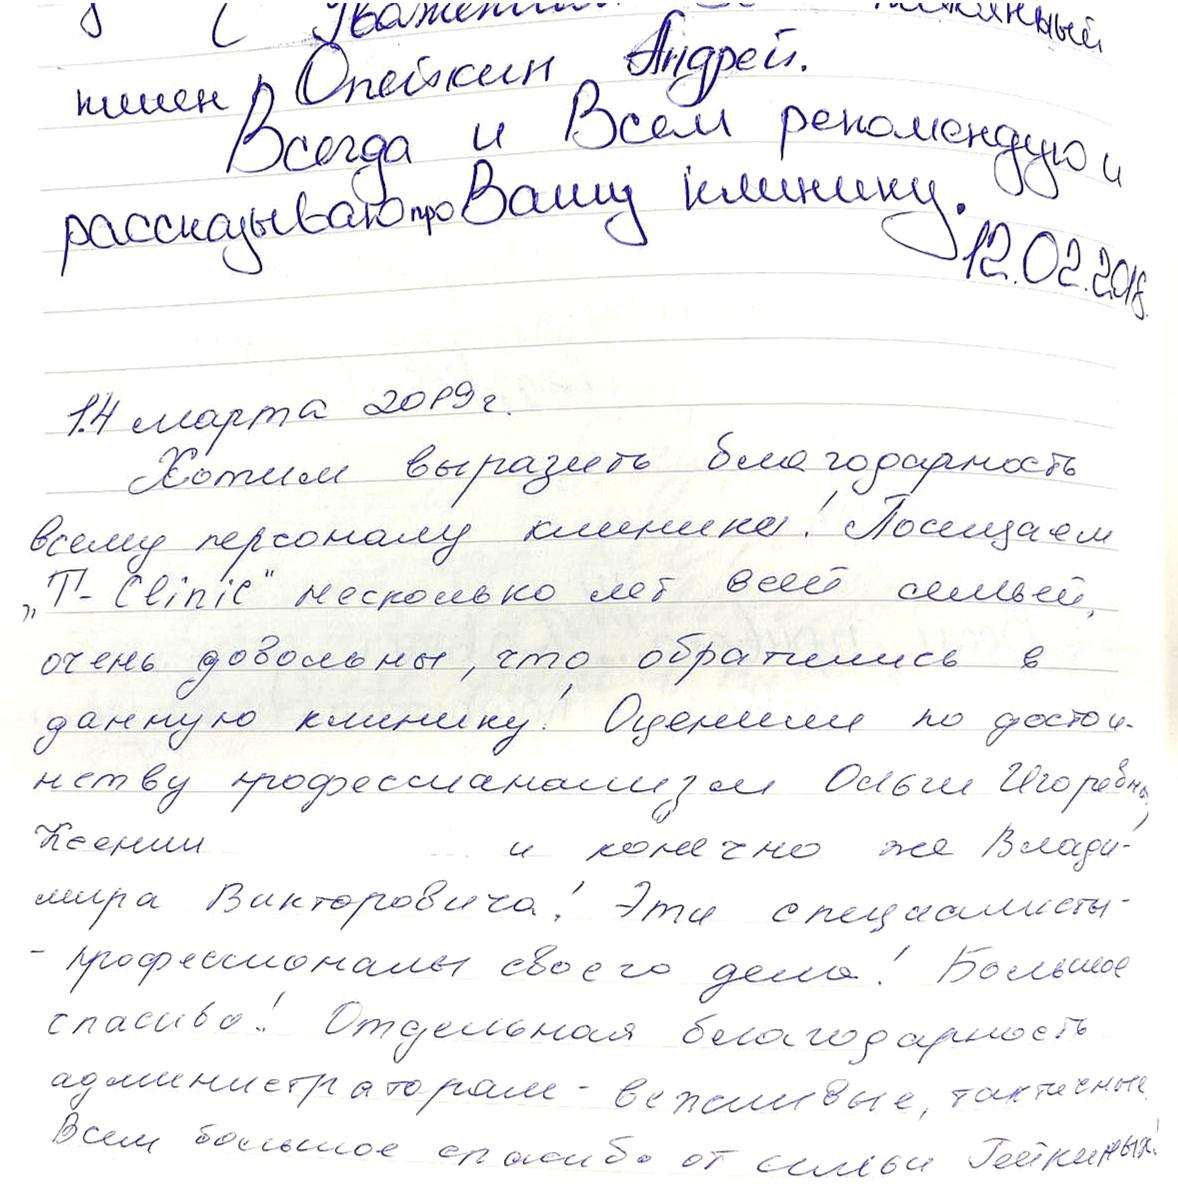 с Уважением
клиент Опейкин Андрей.
Всегда и Всем рекомендую и
рассказываю про Вашу клинику.
12.02.2018.
14 марта 2019г.
Хотим выразить благодарность
всему персоналу клиники! Посещаем
„T-Clinic" несколько лет всей семьей,
очень довольны, что обратились в
данную клинику! Оценили по достои-
нству професианализм Ольги Игоревны,
Ксении и конечно же Влади-
мира Викторовича! Эти специалисты-
- професионалы своего дела! Большое
спасибо! Отдельная благодарность
администраторам - вежливые, тактичные
Всем большое спасибо от семьи Гейкиных!